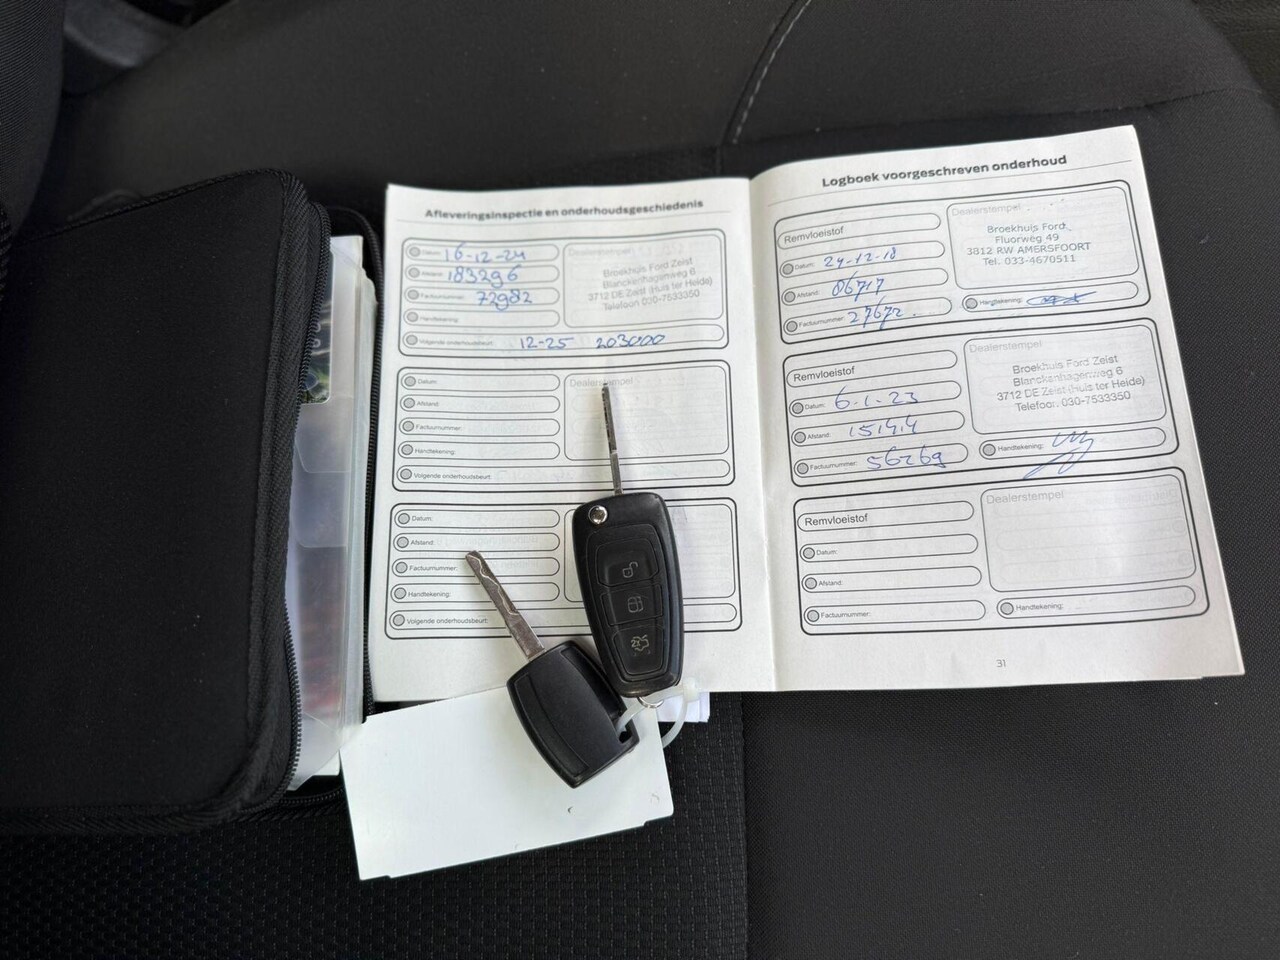 Afleveringsinspectie en onderhoudsgeschiedenis
Datum: 16-12-24
Afstand: 183296
Factuurnummer: 72982
Handtekening:
Volgende onderhoudsbeurt: 12-25 203000
Dealerstempel
Broekhuis Ford Zeist
Blanckenhagenweg 6
3712 DE Zeist (Huis ter Heide)
Telefoon 030-7533350
Datum:
Afstand:
Factuurnummer:
Handtekening:
Volgende onderhoudsbeurt:
Dealerstempel
Datum:
Afstand:
Factuurnummer:
Handtekening:
Volgende onderhoudsbeurt:
Logboek voorgeschreven onderhoud
Remvloeistof
Datum: 24-12-18
Afstand: 86717
Factuurnummer: 27672
Dealerstempel
Broekhuis Ford
Fluorweg 49
3812 RW AMERSFOORT
Tel. 033-4670511
Handtekening:
Remvloeistof
Datum: 6-1-23
Afstand:
Factuurnummer: 56269
Dealerstempel
Broekhuis Ford Zeist
Blanckenhagenweg 6
3712 DE Zeist (Huis ter Heide)
Telefoon 030-7533350
Handtekening:
Remvloeistof
Datum:
Afstand:
Factuurnummer:
Dealerstempel
Handtekening:
31
2x